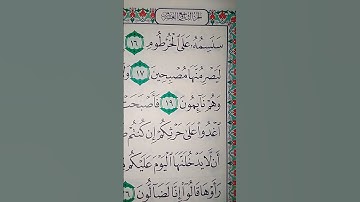 سَنَسِمُهُۥ عَلَى ٱلْخُرْطُومِ ١٦
لَيَصْرِمُنَّهَا مُصْبِحِينَ ١٧
وَهُمْ نَآئِمُونَ ١٩ فَأَصْبَحَتْ
ٱغْدُوا۟ عَلَىٰ حَرْثِكُمْ إِن كُنتُمْ
أَن لَّا يَدْخُلَنَّهَا ٱلْيَوْمَ عَلَيْكُم
رَأَوْهَا قَالُوٓا۟ إِنَّا لَضَآلُّونَ